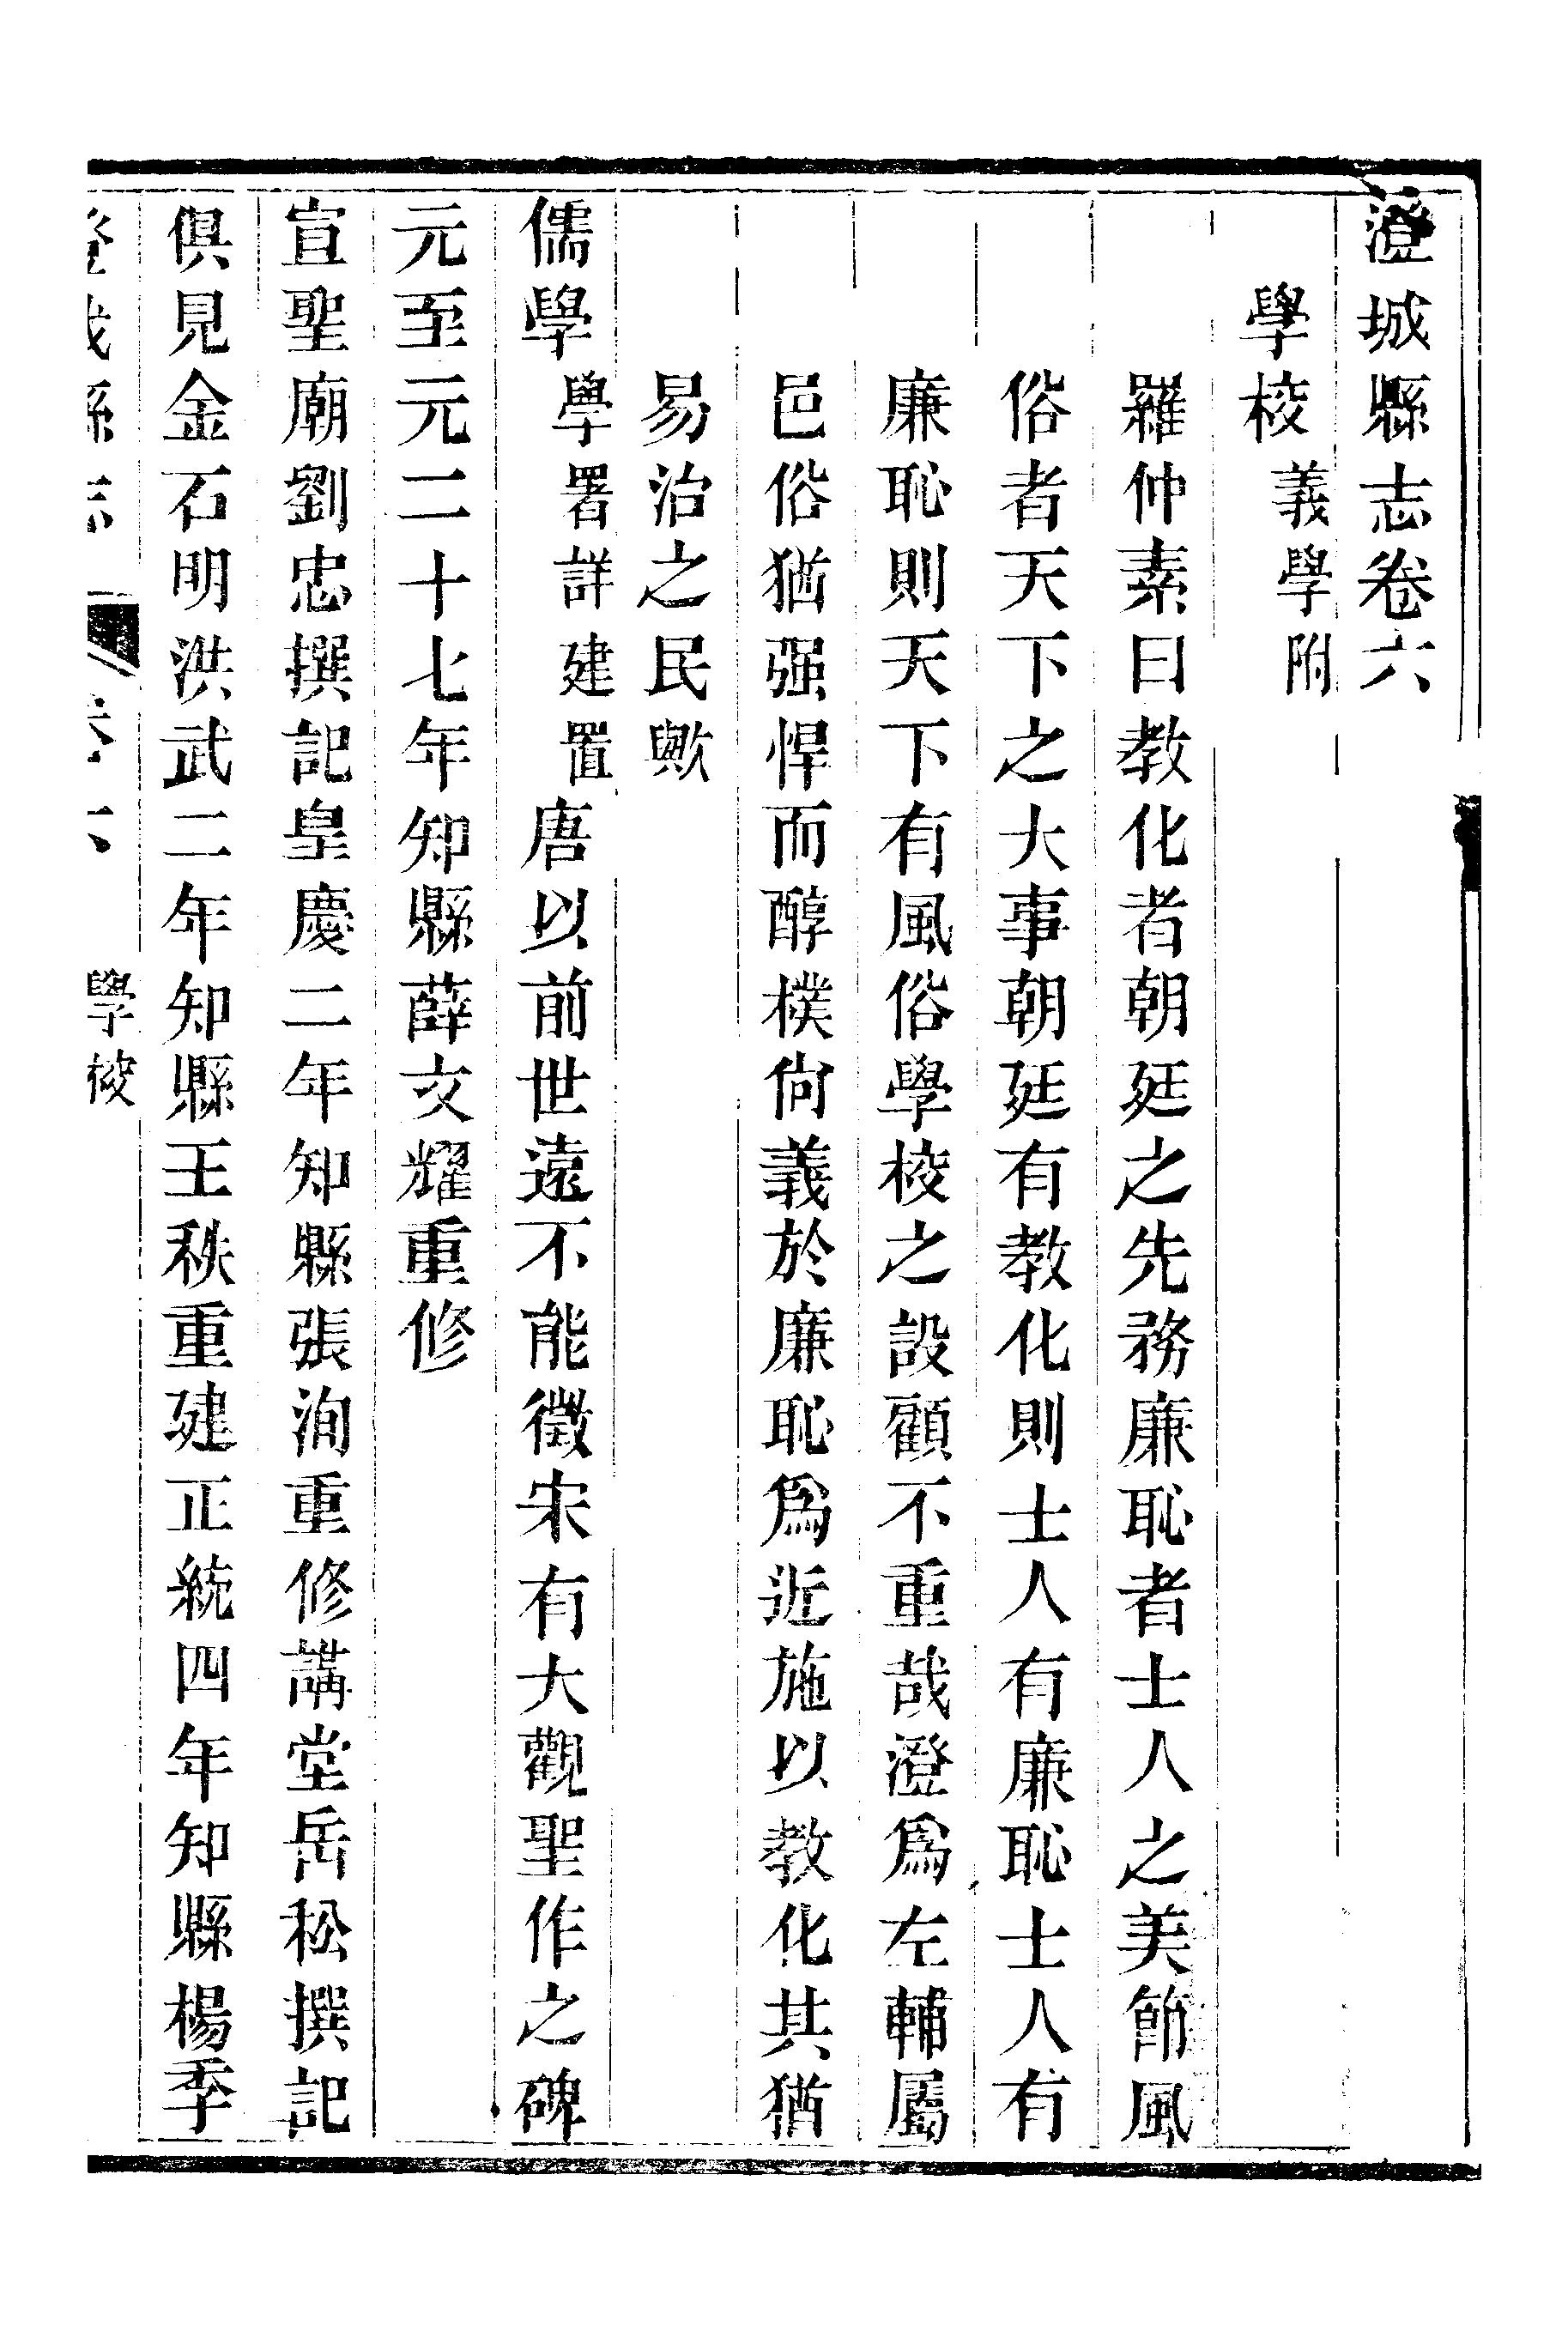 澄城縣志卷六
學校義學附
羅仲素曰教化者朝廷之先務廉恥者士人之美節風
俗者天下之大事朝廷有教化則士人有廉恥士人有
廉恥則天下有風俗學校之設顧不重哉澄爲左輔屬
邑俗猶强悍而醇樸尙義於廉恥爲近施以教化其猶
易治之民歟
儒學學署詳建置唐以前世遠不能徵宋有大觀聖作之碑
元至元二十七年知縣薛文耀重修
宣聖廟劉忠撰記皇慶二年知縣張洵重修講堂岳松撰記
俱見金石明洪武二年知縣王秩重建正統四年知縣楊季
澄城縣志 卷六 學校